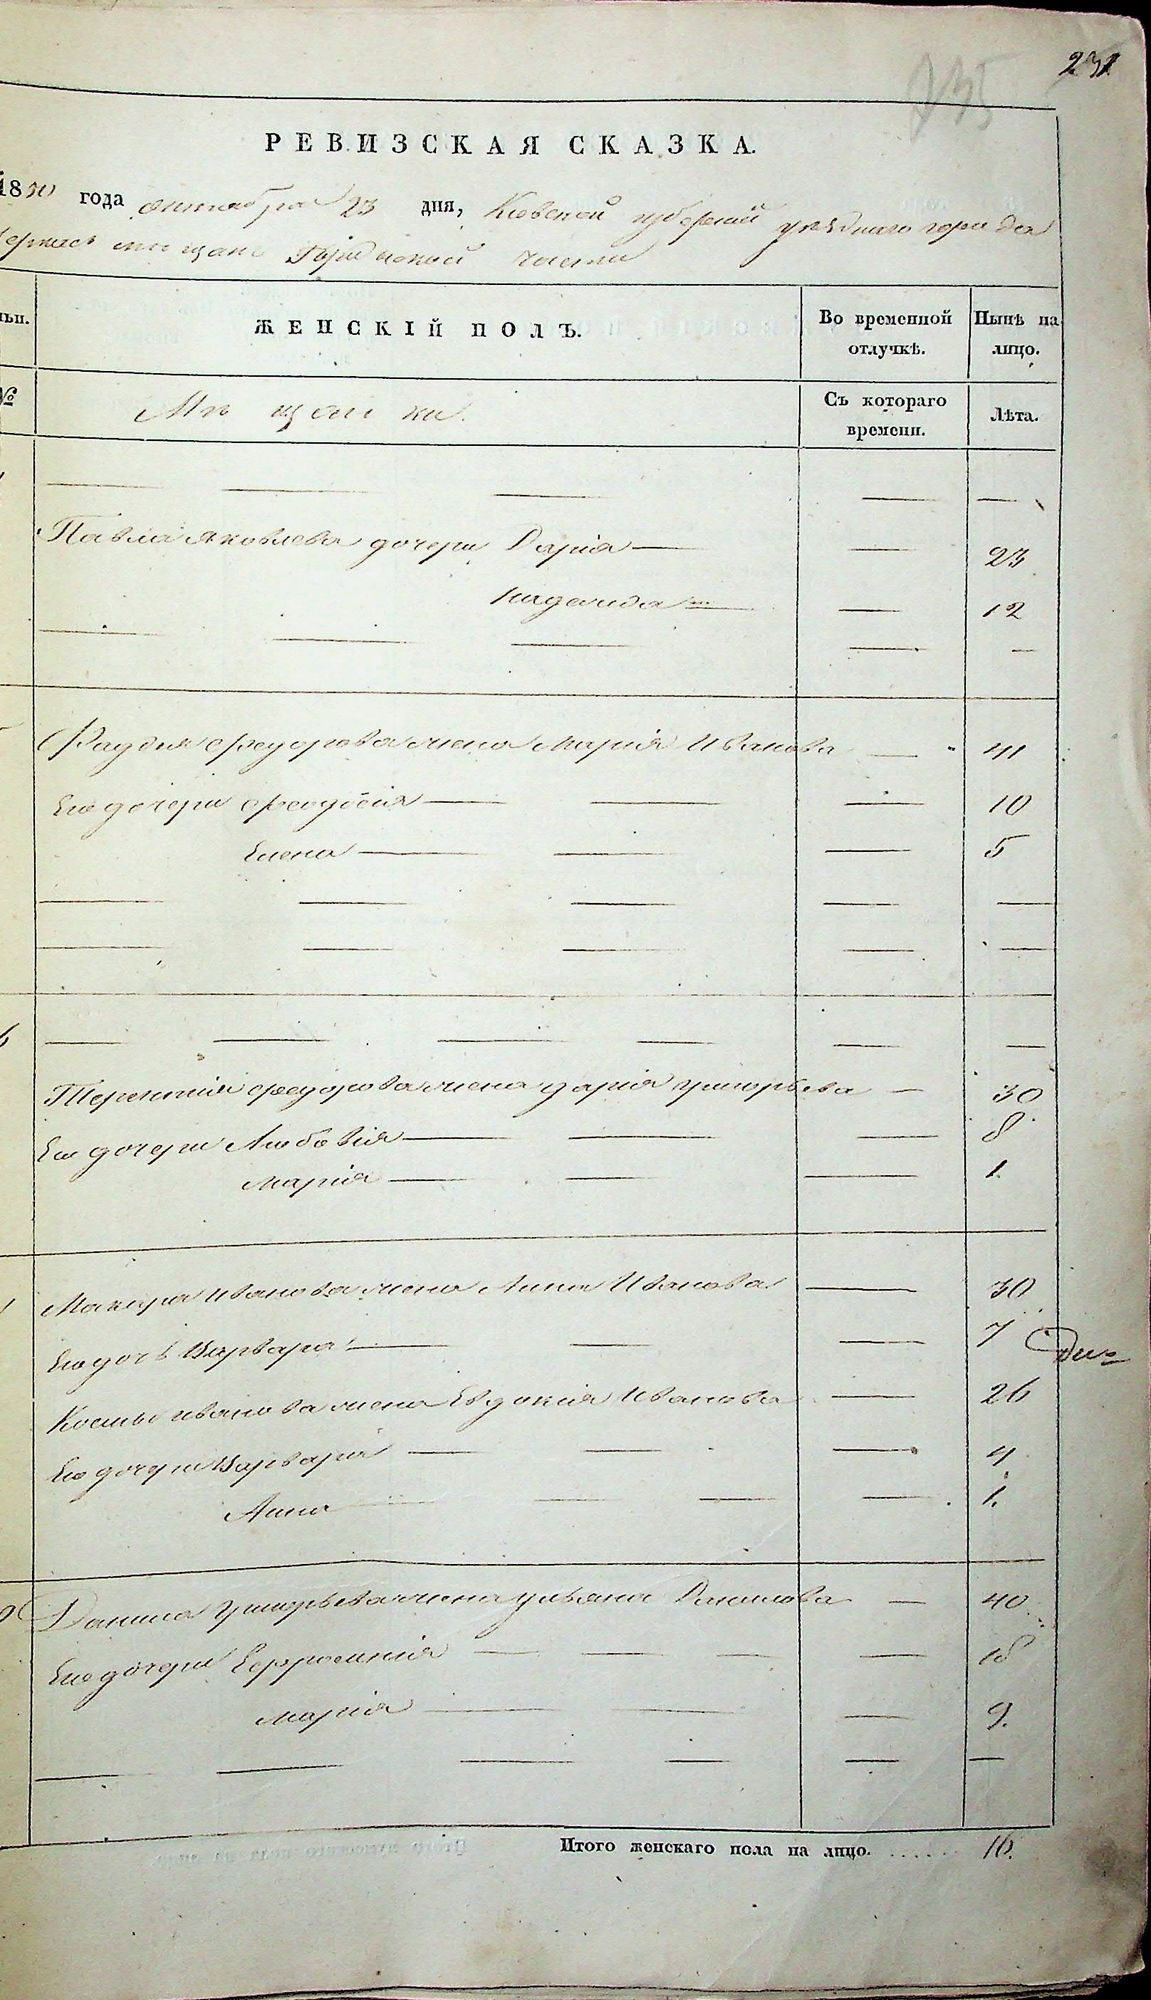 231
235
РЕВИЗСКАЯ СКАЗКА.
1850 года октября 23 дня, Киевской губернии уѣзднаго города
Черкас мещане Городской части
ЖЕНСКІЙ ПОЛЪ.
Во временной отлучкѣ.
Нынѣ на лицо.
№
Мѣщанки.
Съ котораго времени.
Лѣта.
Павла Яковлева дочери Дарія — — 23
Надежда — — 12
Федорова жена Марія Иванова — 41
Его дочери Феодосія — — — 10
Елена — — — 5
6
Терентія Федорова жена Дарія Григорьева — 30
Его дочери Любовія — — — 8
Марія — — — 1.
Макара Иванова жена Анна Иванова — 30
Его дочь Варвара — — — 7
Космы Иванова жена Евдокія Иванова — 26
Его дочери Варвара — — — 4
Анна — — — — 1.
Данила Григорьева жена Ульяна Данилова — 40
Его дочери Евфросинія — — — — 18
Марія — — — 9.
Итого женскаго пола на лицо. . . . . . . 16.